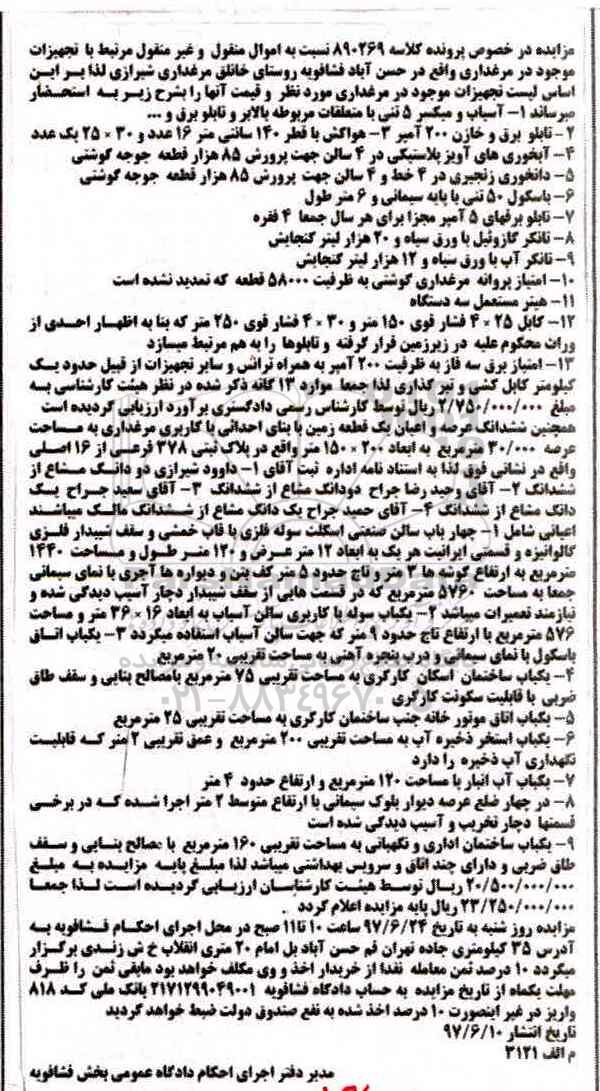 مزایده در خصوص پرونده کلاسه ۸۹۰۲۶۹ نسبت به اموال منقول و غیر منقول مرتبط با تجهیزات
موجود در مرغداری واقع در حسن آباد فشافویه روستای خانلق مرغداری شیرازی لذا بر این
اساس لیست تجهیزات موجود در مرغداری مورد نظر و قیمت آنها را بشرح زیر به استحضار
میرساند ۱- آسیاب و میکسر ۵ تنی با متعلقات مربوطه بالابر و تابلو برق و ...
۲- تابلو برق و خازن ۲۰۰ آمپر ۳- هواکش با قطر ۱۴۰ سانتی متر ۱۶ عدد و ۳۰ × ۲۵ یک عدد
۴- آبخوری های آویز پلاستیکی در ۴ سالن جهت پرورش ۸۵ هزار قطعه جوجه گوشتی
۵- دانخوری زنجیری در ۴ خط و ۴ سالن جهت پرورش ۸۵ هزار قطعه جوجه گوشتی
۶- باسکول ۵۰ تنی با پایه سیمانی و ۶ متر طول
۷- تابلو برقهای ۵ آمپر مجزا برای هر سال جمعا ۴ فقره
۸- تانکر گازوئیل با ورق سیاه و ۲۰ هزار لیتر گنجایش
۹- تانکر آب با ورق سیاه و ۱۲ هزار لیتر گنجایش
۱۰- امتیاز پروانه مرغداری گوشتی به ظرفیت ۵۸۰۰۰ قطعه که تمدید نشده است
۱۱- هیتر مستعمل سه دستگاه
۱۲- کابل ۲۵ × ۴ فشار قوی ۱۵۰ متر و ۳۰ × ۴ فشار قوی ۲۵۰ متر که بنا به اظهار احدی از
وراث محکوم علیه در زیرزمین قرار گرفته و تابلوها را به هم مرتبط میسازد
۱۳- امتیاز برق سه فاز به ظرفیت ۲۰۰ آمپر به همراه ترانس و سایر تجهیزات از قبیل حدود یک
کیلومتر کابل کشی و تیر گذاری لذا جمعا موارد ۱۳ گانه ذکر شده در نظر هیئت کارشناسی به
مبلغ ۲/۷۵۰/۰۰۰/۰۰۰ ریال توسط کارشناس رسمی دادگستری برآورد ارزیابی گردیده است
همچنین ششدانگ عرصه و اعیان یک قطعه زمین با بنای احداثی با کاربری مرغداری به مساحت
عرصه ۳۰/۰۰۰ مترمربع به ابعاد ۲۰۰ × ۱۵۰ متر واقع در پلاک ثبتی ۳۷۸ فرعی از ۱۶ اصلی
واقع در نشانی فوق لذا به استناد نامه اداره ثبت آقای ۱- داوود شیرازی دو دانگ مشاع از
ششدانگ ۲- آقای وحید رضا جراح دودانگ مشاع از ششدانگ ۳- آقای سعید جراح یک
دانگ مشاع از ششدانگ ۴- آقای حمید جراح یک دانگ مشاع از ششدانگ مالک میباشند
اعیانی شامل ۱- چهار باب سالن صنعتی اسکلت سوله فلزی با قاب خمشی و سقف شیبدار فلزی
گالوانیزه و قسمتی ایرانیت هر یک به ابعاد ۱۲ متر عرض و ۱۲۰ متر طول و مساحت ۱۴۴۰
مترمربع به ارتفاع گوشه ها ۳ متر و تاج حدود ۵ متر کف بتن و دیواره ها آجری با نمای سیمانی
جمعا به مساحت ۵۷۶۰ مترمربع که در قسمت هایی از سقف شیبدار دچار آسیب دیدگی شده و
نیازمند تعمیرات میباشد ۲- یکباب سوله با کاربری سالن آسیاب به ابعاد ۱۶ × ۳۶ متر و مساحت
۵۷۶ مترمربع با ارتفاع تاج حدود ۹ متر که جهت سالن آسیاب استفاده میگردد ۳- یکباب اتاق
باسکول با نمای سیمانی و درب پنجره آهنی به مساحت تقریبی ۲۰ مترمربع
۴- یکباب ساختمان اسکان کارگری به مساحت تقریبی ۷۵ مترمربع بامصالح بنایی و سقف طاق
ضربی با قابلیت سکونت کارگری
۵- یکباب اتاق موتور خانه جنب ساختمان کارگری به مساحت تقریبی ۲۵ مترمربع
۶- یکباب استخر ذخیره آب به مساحت تقریبی ۲۰۰ مترمربع و عمق تقریبی ۲ متر که قابلیت
نگهداری آب ذخیره را دارد
۷- یکباب آب انبار با مساحت ۱۲۰ مترمربع و ارتفاع حدود ۴ متر
۸- در چهار ضلع عرصه دیوار بلوک سیمانی با ارتفاع متوسط ۲ متر اجرا شده که در برخی
قسمتها دچار تخریب و آسیب دیدگی شده است
۹- یکباب ساختمان اداری و نگهبانی به مساحت تقریبی ۱۶۰ مترمربع با مصالح بنایی و سقف
طاق ضربی و دارای چند اتاق و سرویس بهداشتی میباشد لذا مبلغ پایه مزایده به مبلغ
۲۰/۵۰۰/۰۰۰/۰۰۰ ریال توسط هیئت کارشناسان ارزیابی گردیده است لذا جمعا
۲۳/۲۵۰/۰۰۰/۰۰۰ ریال پایه مزایده اعلام گردد
مزایده روز شنبه به تاریخ ۹۷/۶/۲۴ ساعت ۱۰ تا۱۱ صبح در محل اجرای احکام فشافویه به
آدرس ۳۵ کیلومتری جاده تهران قم حسن آباد بل امام ۲۰ متری انقلاب خ ش زندی برگزار
میگردد ۱۰ درصد ثمن معامله نقدا از خریدار اخذ و وی مکلف خواهد بود مابقی ثمن را ظرف
مهلت یکماه از تاریخ مزایده به حساب دادگاه فشافویه ۲۱۷۱۲۹۹۰۴۹۰۰۱ بانک ملی کد ۸۱۸
واریز در غیر اینصورت ۱۰ درصد اخذ شده به نفع صندوق دولت ضبط خواهد گردید
تاریخ انتشار ۹۷/۶/۱۰
م الف ۳۱۲۱
مدیر دفتر اجرای احکام دادگاه عمومی بخش فشافویه
۰۲۱-۸۸۳۴۹۶۷۰-۵